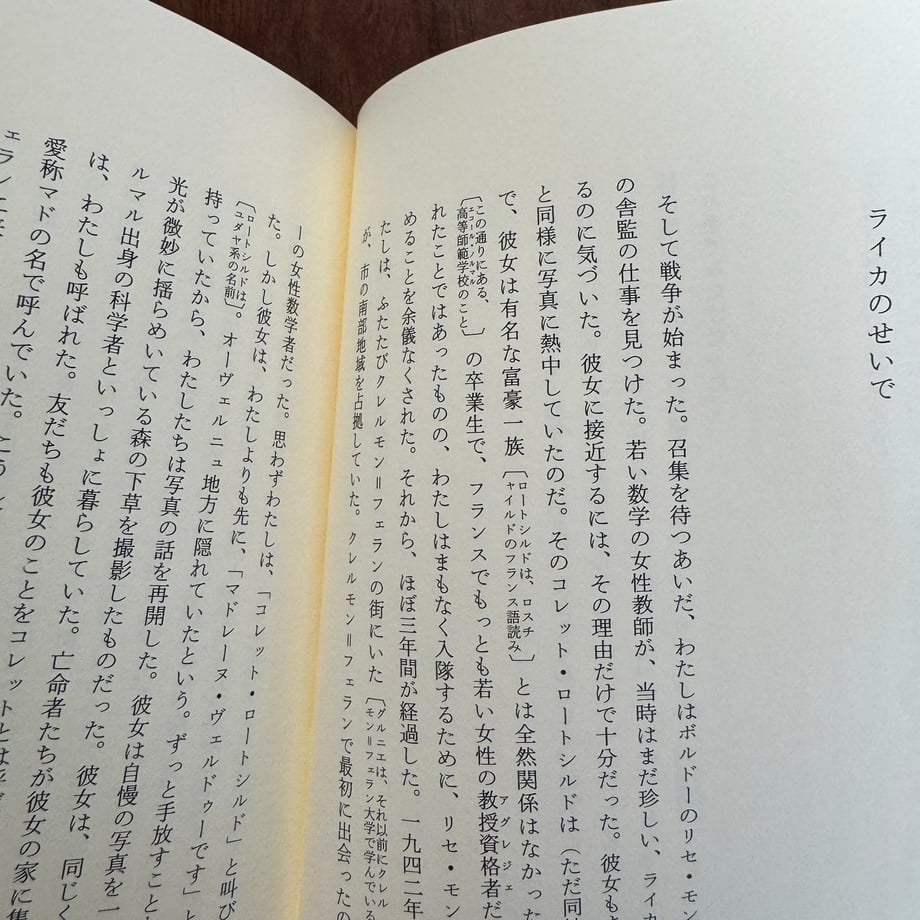 ライカのせいで
そして戦争が始まった。召集を待つあいだ、わたしはボルドーのリセ・モン
の舎監の仕事を見つけた。若い数学の女性教師が、当時はまだ珍しい、ライカ
るのに気づいた。彼女に接近するには、その理由だけで十分だった。彼女もま
と同様に写真に熱中していたのだ。そのコレット・ロートシルドは(ただ同
で、彼女は有名な富豪一族〔ロートシルドは、ロスチャイルドのフランス語読み〕とは全然関係はなかった
〔この通りにある、高等師範学校のこと〕の卒業生で、フランスでもっとも若い女性の教授資格者だ
れたことではあったものの、わたしはまもなく入隊するために、リセ・モン
めることを余儀なくされた。それから、ほぼ三年間が経過した。一九四二年
たしは、ふたたびクレルモン=フェランの街にいた〔グルニエは、それ以前にクレルモン=フェラン大学で学んでいる
が、市の南部地域を占拠していた。クレルモン=フェランで最初に出会ったの
ーの女性数学者だった。思わずわたしは、「コレット・ロートシルド」と叫び
た。しかし彼女は、わたしよりも先に、「マドレーヌ・ヴェルドゥーです」と
〔ロートシルドは、ユダヤ系の名前〕。オーヴェルニュ地方に隠れていたという。ずっと手放すこと
持っていたから、わたしたちは写真の話を再開した。彼女は自慢の写真を一
光が微妙に揺らめいている森の下草を撮影したものだった。彼女は、同じく
ルマル出身の科学者といっしょに暮らしていた。亡命者たちが彼女の家に集
は、わたしも呼ばれた。友だちも彼女のことをコレットとは呼
愛称マドの名で呼んでいた。